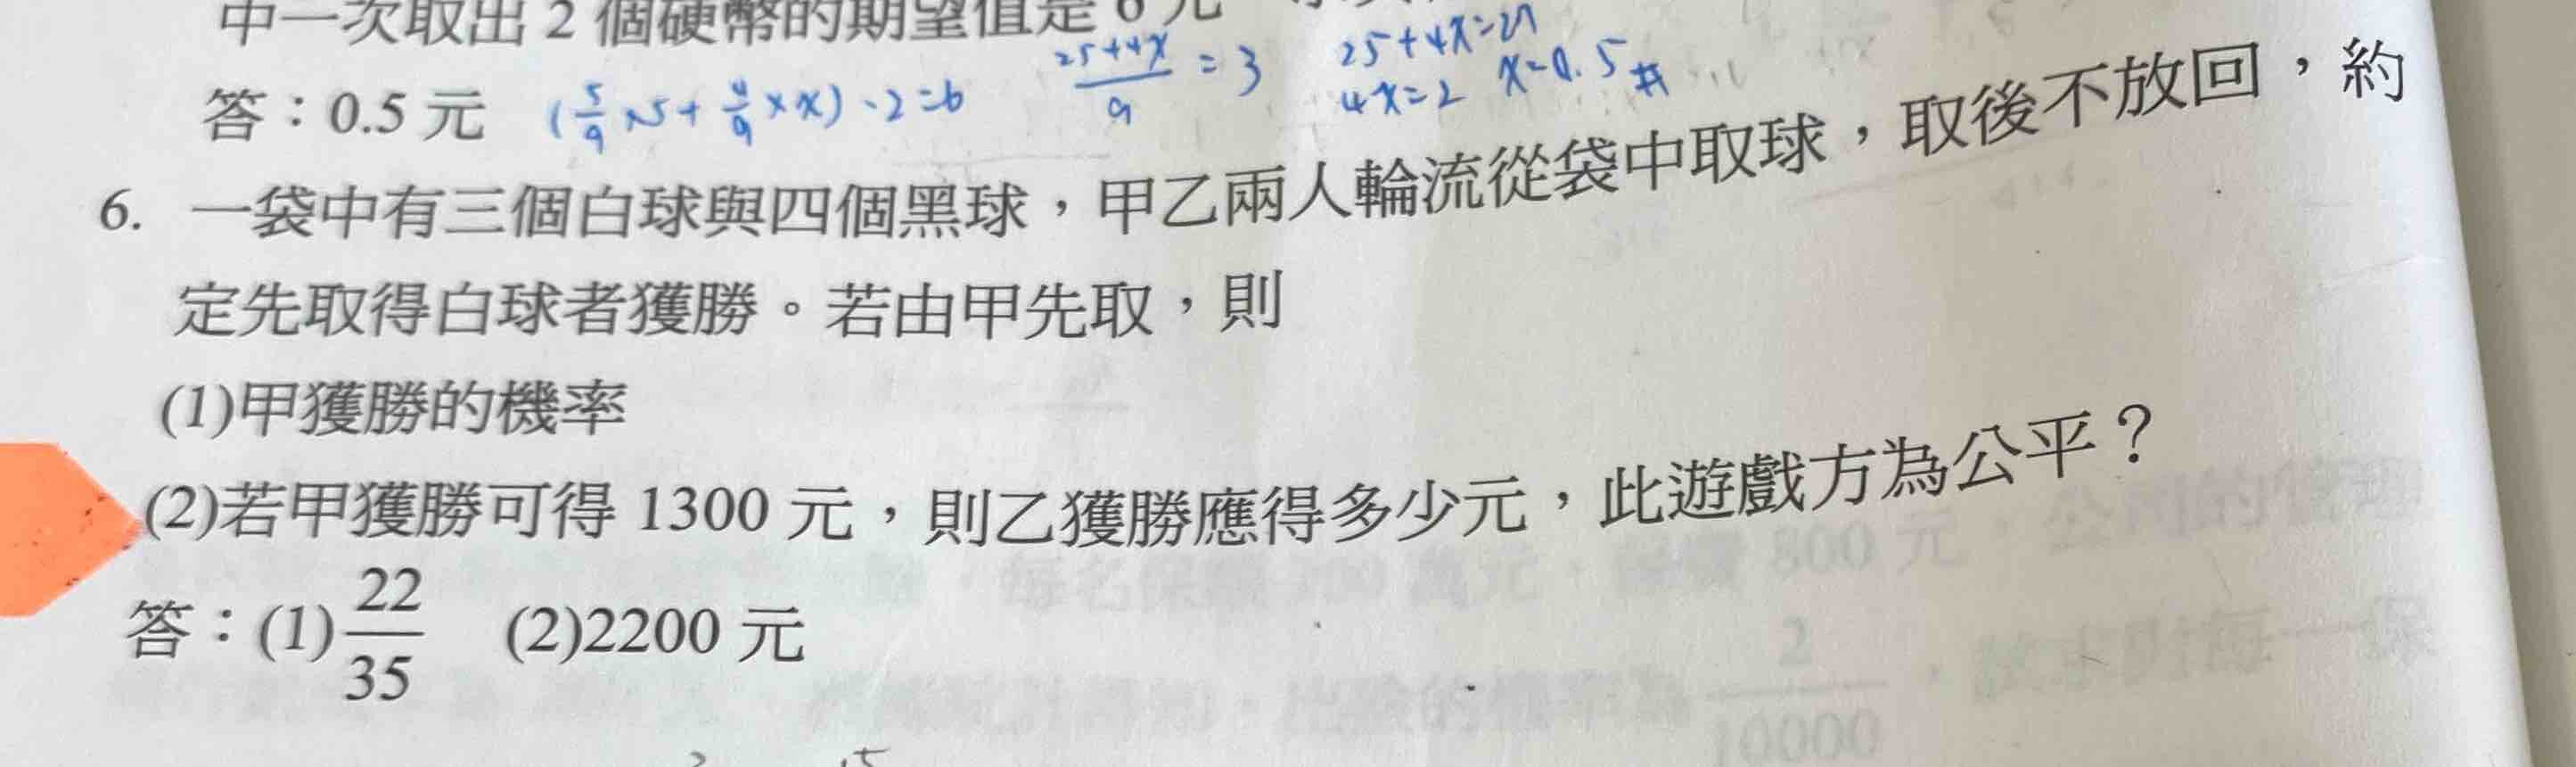 中一次取出 2 個硬幣的期望值是 6 元
答：0.5 元 (5/9 × 5 + 4/9 × x) · 2 = 6 (25+4x)/9 = 3 25+4x=27 4x=2 x=0.5 #
6. 一袋中有三個白球與四個黑球，甲乙兩人輪流從袋中取球，取後不放回，約
定先取得白球者獲勝。若由甲先取，則
(1)甲獲勝的機率
(2)若甲獲勝可得 1300 元，則乙獲勝應得多少元，此遊戲方為公平？
答：(1)22/35 (2)2200 元